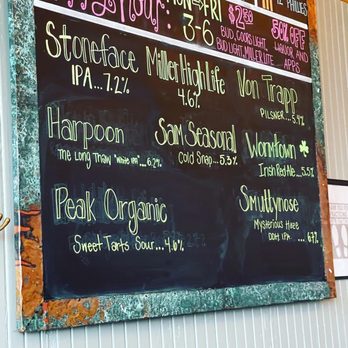 Happy Hour: MON-FRI
3-6
$2.50
BUD, COORS LIGHT,
BUD LIGHT, MILLER LITE
50% OFF
LIQUOR AND
APPS
Stoneface
IPA...7.2%
Miller High Life
4.6%
Von Trapp
PILSNER...5.4%
Harpoon
The Long Thaw "White IPA"...6.2%
Sam Seasonal
Cold Snap...5.3%
Wormtown
Irish Red Ale...5.5%
Peak Organic
Sweet Tarts Sour...4.6%
Smuttynose
Mysterious Haze
DDH IPA...6.7%